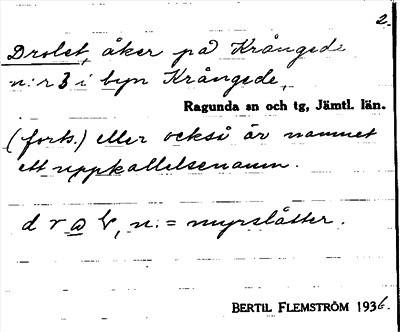 2.
Drolet, åker på Krångede
n:r 3 i byn Krångede,
Ragunda sn och tg, Jämtl. län.
(forts.) eller också är namnet
ett uppkallelsenamn.
n. = myrslåtter.
BERTIL FLEMSTRÖM 1936.